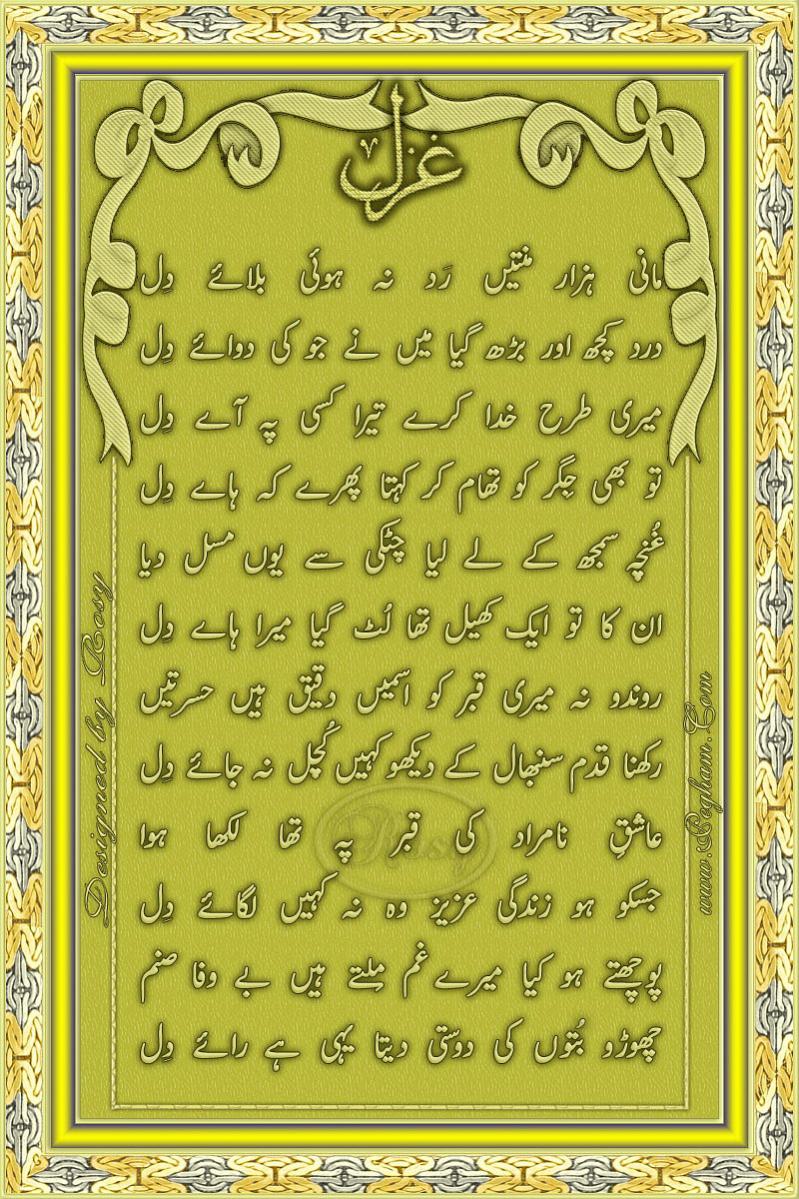 غزل
مانی ہزار منتیں رَد نہ ہوئی بلائے دِل
درد کچھ اور بڑھ گیا میں نے جو کی دوائے دِل
میری طرح خدا کرے تیرا کسی پہ آے دِل
تو بھی جگر کو تھام کر کہتا پھرے کہ ہاے دِل
غُنچہ سمجھ کے لے لیا چٹکی سے یوں مسل دیا
ان کا تو ایک کھیل تھا لُٹ گیا میرا ہاے دِل
روندو نہ میری قبر کو اسمیں دقیق ہیں حسرتیں
رکھنا قدم سنبھال کے دیکھو کہیں کُچل نہ جائے دِل
عاشقِ نامراد کی قبر پہ تھا لکھا ہوا
جسکو ہو زندگی عزیز وہ نہ کہیں لگائے دِل
پوچھتے ہو کیا میرے غم مِلتے ہیں بے وفا صنم
چھوڑو بُتوں کی دوستی دیتا یہی ہے رائے دِل
Designed by Rosy
www.Pegham.Com
Rosy